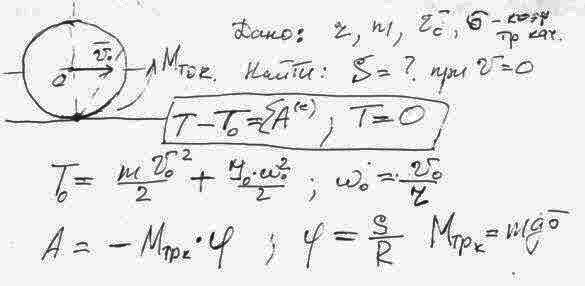 Дано: r, m, v₀, δ - коэф
тр кач.
O v̄₀ Mток. Найти: S = ? при v = 0
T - T₀ = ΣA⁽ᵉ⁾ ; T = 0
T₀ = mv₀²/2 + J₀·ω₀²/2 ; ω₀ = v₀/r
A = - Mтрк · φ ; φ = S/R Mтрк = mgδ